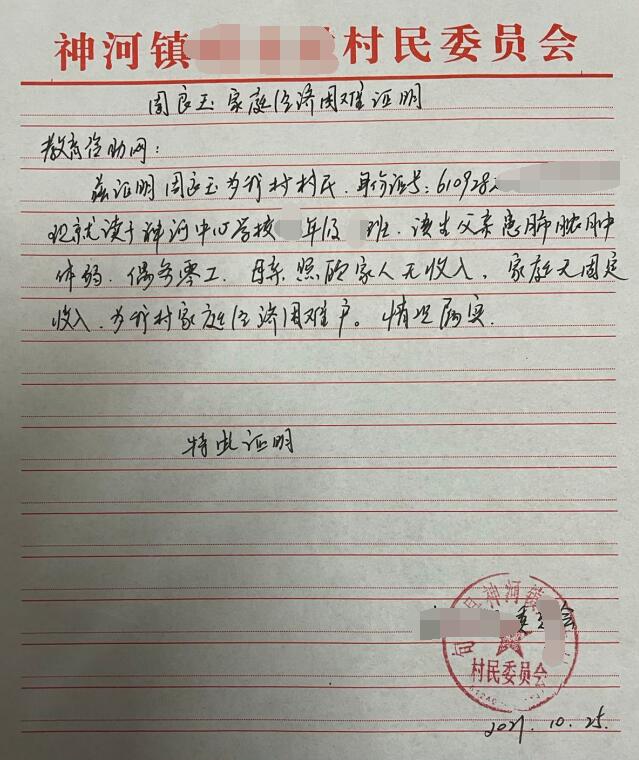 神河镇 村民委员会
周良玉家庭经济困难证明
教育资助网：
兹证明周良玉为我村村民.身份证号：610928
现就读于神河中心学校 年级 班.该生父亲患肺脓肿
体弱.偶务零工.母亲照顾家人无收入.家庭无固定
收入.为我村家庭经济困难户。情况属实.
特此证明
委 会
旬 神河镇
村民委员会
2021.10.25.